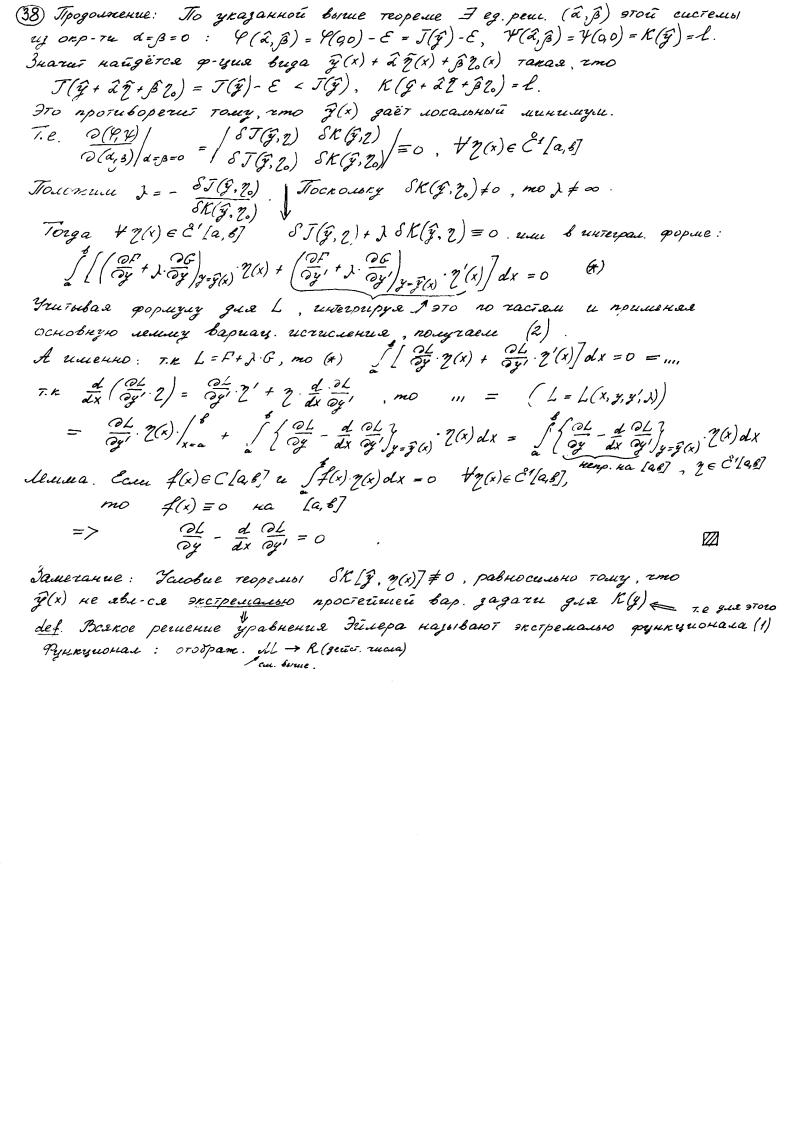 (38) Продолжение: По указанной выше теореме ∃ ед. реш. (α̂, β̂) этой системы
из окр-ти α=β=0 : φ(α̂, β̂) = φ(0,0) − ε = J(ŷ) − ε, ψ(α̂, β̂) = ψ(0,0) = K(ŷ) = l.
Значит найдётся ф-ция вида ŷ(x) + α̂ η̃(x) + β̂ η₀(x) такая, что
J(ŷ + α̂ η̃ + β̂ η₀) = J(ŷ) − ε < J(ŷ), K(ŷ + α̂ η̃ + β̂ η₀) = l.
Это противоречит тому, что ŷ(x) даёт локальный минимум.
Т.е. ∂(φ,ψ)/∂(α,β) |α=β=0 = | δJ(ŷ,η) δK(ŷ,η) ; δJ(ŷ,η₀) δK(ŷ,η₀) | = 0, ∀η(x) ∈ C̊¹[a,b]
Положим λ = − δJ(ŷ,η₀)/δK(ŷ,η₀). Поскольку δK(ŷ,η₀) ≠ 0, то λ ≠ ∞.
Тогда ∀η(x) ∈ C̊¹[a,b] δJ(ŷ,η) + λ δK(ŷ,η) = 0. или в интеграл. форме:
∫ₐᵇ [(∂F/∂y + λ·∂G/∂y)y=ŷ(x) · η(x) + (∂F/∂y' + λ·∂G/∂y')y=ŷ(x) · η'(x)] dx = 0 (*)
Учитывая формулу для L, интегрируя это по частям и применяя
основную лемму вариац. исчисления, получаем (2).
А именно: т.к L = F + λ·G, то (*) ∫ₐᵇ [∂L/∂y · η(x) + ∂L/∂y' · η'(x)] dx = 0 = ...,
т.к d/dx (∂L/∂y' · η) = ∂L/∂y' · η' + η · d/dx ∂L/∂y', то ... = (L = L(x,y,y',λ))
= ∂L/∂y' · η(x) |ᵇx=a + ∫ₐᵇ {∂L/∂y − d/dx ∂L/∂y'}y=ŷ(x) · η(x) dx = ∫ₐᵇ {∂L/∂y − d/dx ∂L/∂y'}y=ŷ(x) · η(x) dx
непр. на [a,b], η ∈ C̊¹[a,b]
Лемма. Если f(x) ∈ C[a,b] и ∫ₐᵇ f(x) η(x) dx = 0 ∀η(x) ∈ C̊¹[a,b],
то f(x) ≡ 0 на [a,b]
=> ∂L/∂y − d/dx ∂L/∂y' = 0 .
Замечание: Условие теоремы δK[ŷ, η(x)] ≢ 0, равносильно тому, что
ŷ(x) не явл-ся экстремалью простейшей вар. задачи для K(y) ⇐ т.е для этого
def. Всякое решение уравнения Эйлера называют экстремалью функционала (1)
Функционал: отображ. M → R (дейст. числа)
см. выше.